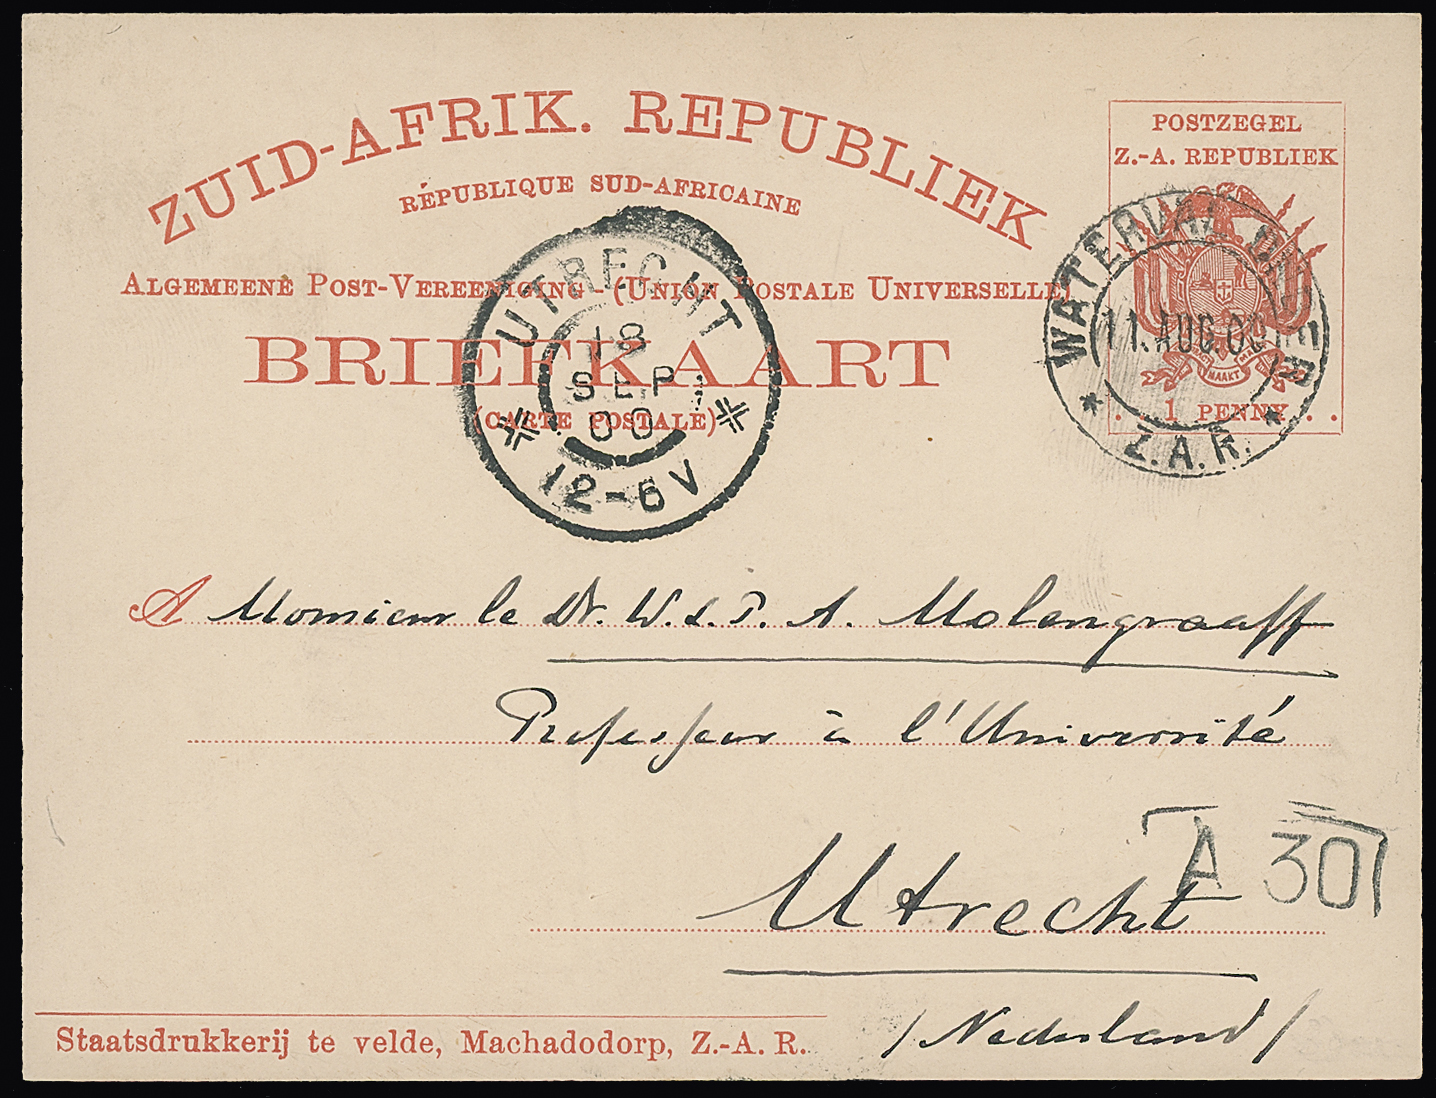 ZUID-AFRIK. REPUBLIEK
RÉPUBLIQUE SUD-AFRICAINE
ALGEMEENE POST-VEREENIGING (UNION POSTALE UNIVERSELLE)
BRIEFKAART
(CARTE POSTALE)
POSTZEGEL
Z.-A. REPUBLIEK
MAAKT
1 PENNY
WATERVAL ONDER
11.AUG.00
Z.A.R.
UTRECHT
18
SEP
00
12-6V
A Monsieur le Dr. W.L.P.A. Molengraaff
Professeur à l'Université
A 30
Utrecht
/Nederland/
Staatsdrukkerij te velde, Machadodorp, Z.-A. R.